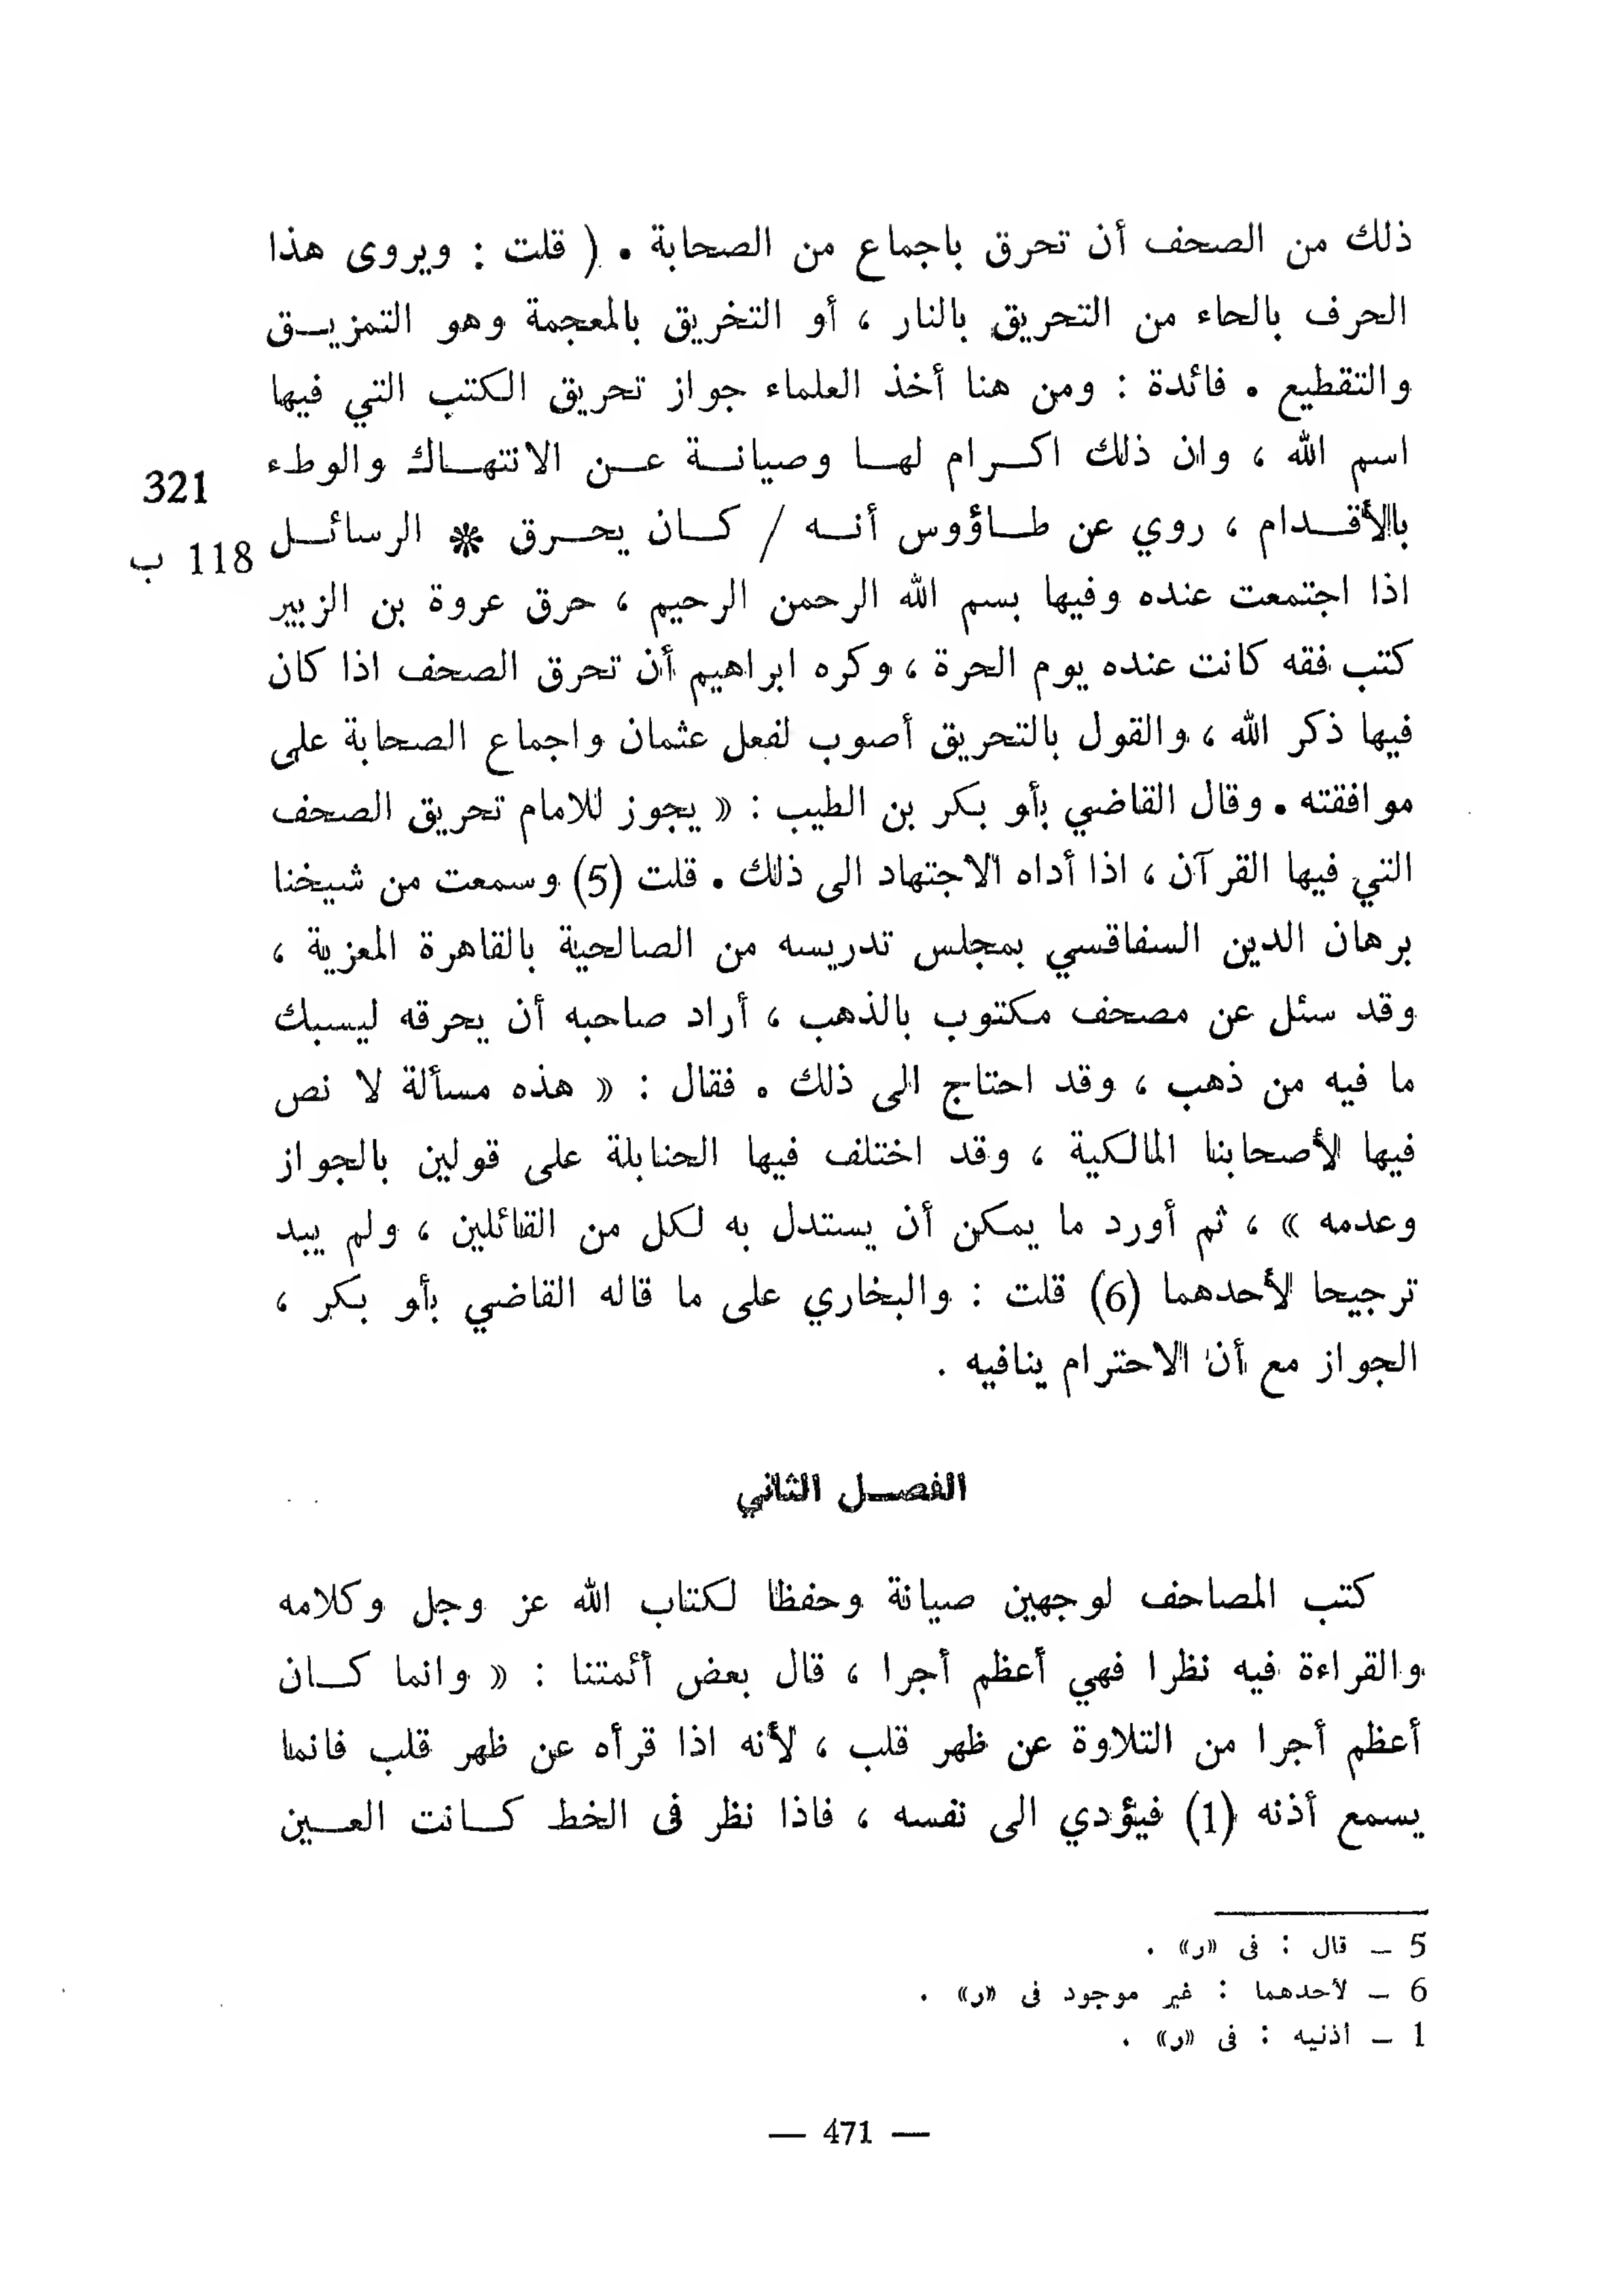 ذلك من الصحف أن تحرق باجماع من الصحابة . ( قلت : ويروى هذا
الحرف بالحاء من التحريق بالنار ، أو التخريق بالمعجمة وهو التمزيـق
والتقطيع . فائدة : ومن هنا أخذ العلماء جواز تحريق الكتب التي فيها
اسم الله ، وان ذلك اكـرام لهـا وصيانـة عـن الانتهـاك والوطء
321
بالأقـدام ، روي عن طـاؤوس أنـه / كـان يحـرق * الرسائـل
118 ب
اذا اجتمعت عنده وفيها بسم الله الرحمن الرحيم ، حرق عروة بن الزبير
كتب فقه كانت عنده يوم الحرة ، وكره ابراهيم أن تحرق الصحف اذا كان
فيها ذكر الله ، والقول بالتحريق أصوب لفعل عثمان واجماع الصحابة على
موافقته . وقال القاضي بأو بكر بن الطيب : « يجوز للامام تحريق الصحف
التي فيها القرآن ، اذا أداه الاجتهاد الى ذلك . قلت (5) وسمعت من شيخنا
برهان الدين السفاقسي بمجلس تدريسه من الصالحية بالقاهرة المعزية ،
وقد سئل عن مصحف مكتوب بالذهب ، أراد صاحبه أن يحرقه ليسبك
ما فيه من ذهب ، وقد احتاج الى ذلك . فقال : « هذه مسألة لا نص
فيها لأصحابنا المالكية ، وقد اختلف فيها الحنابلة على قولين بالجواز
وعدمه » ، ثم أورد ما يمكن أن يستدل به لكل من القائلين ، ولم يبد
ترجيحا لأحدهما (6) قلت : والبخاري على ما قاله القاضي بأو بكر ،
الجواز مع أن الاحترام ينافيه .
الفصـل الثاني
كتب المصاحف لوجهين صيانة وحفظا لكتاب الله عز وجل وكلامه
والقراءة فيه نظرا فهي أعظم أجرا ، قال بعض أئمتنا : « وانما كـان
أعظم أجرا من التلاوة عن ظهر قلب ، لأنه اذا قرأه عن ظهر قلب فانما
يسمع أذنه (1) فيؤدي الى نفسه ، فاذا نظر فى الخط كـانت العـين
5 – قال : فى «ر» .
6 – لأحدهما : غير موجود فى «ر» .
1 – أذنيه : فى «ر» .
— 471 —